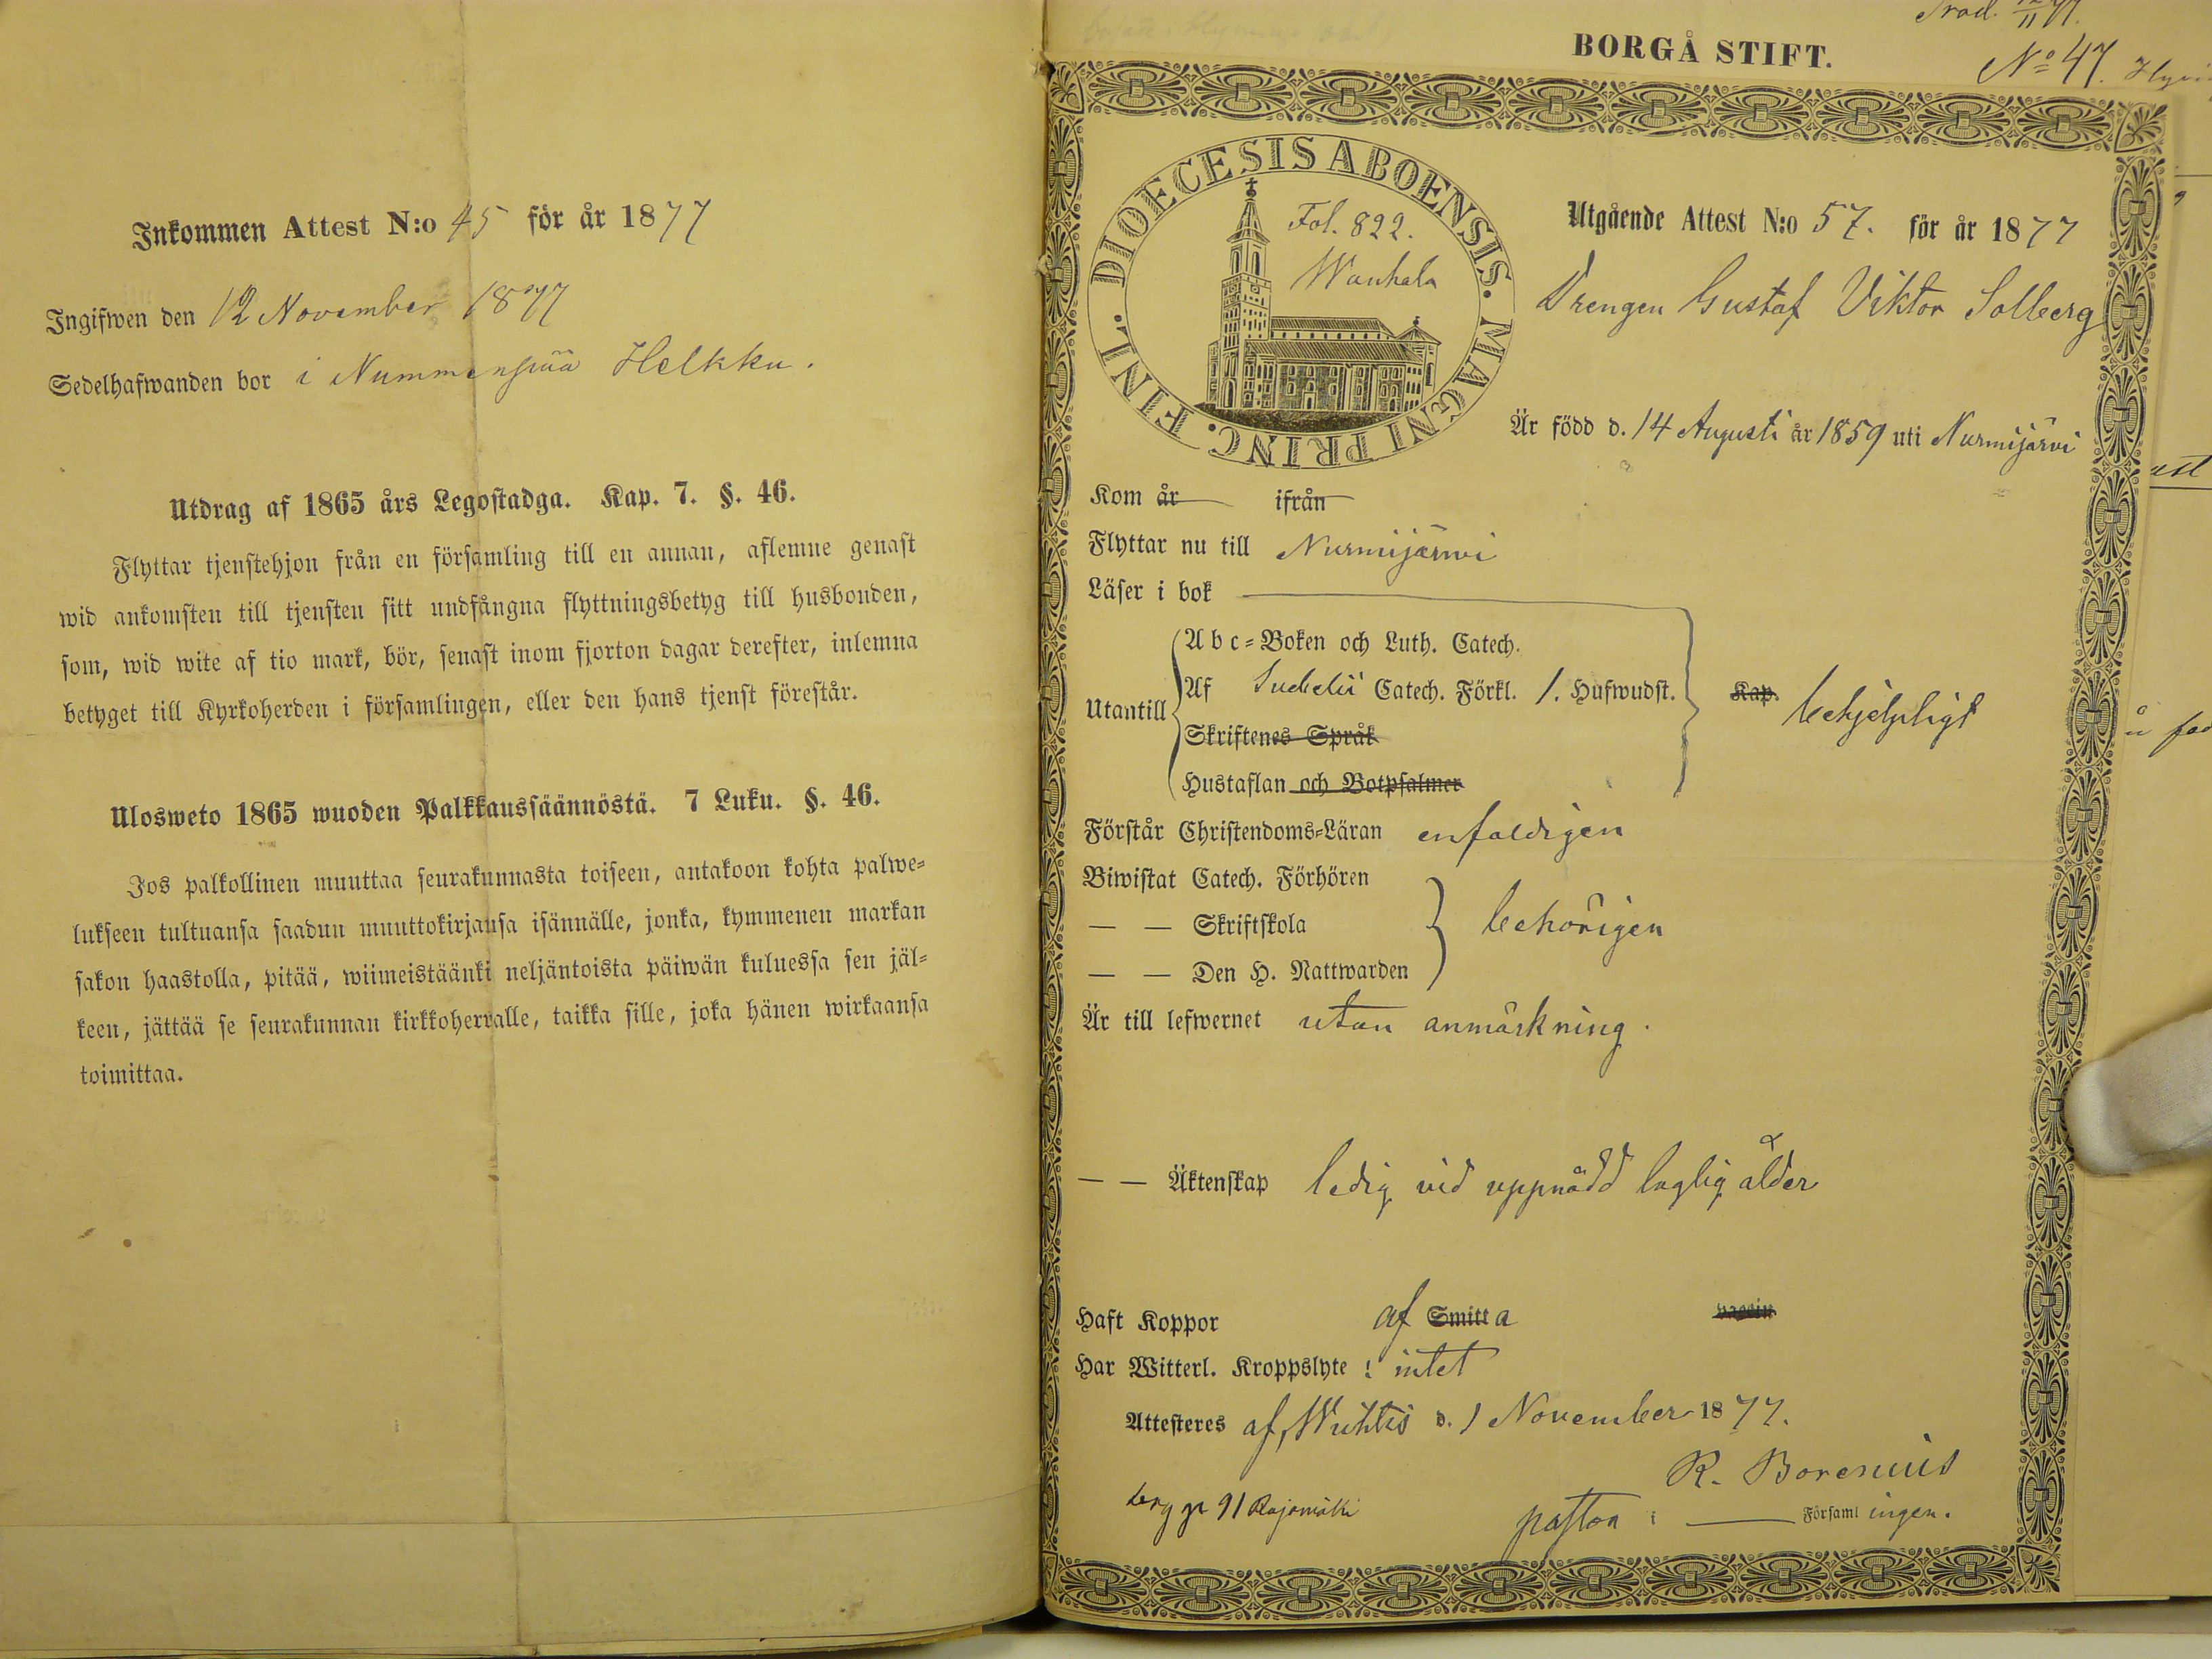 Inkommen Attest N:o 45 för år 1877
Ingifwen den 12 November 1877
Sedelhafwanden bor i Nummenpää Helkku.
Utdrag af 1865 års Legostadga. Kap. 7. §. 46.
Flyttar tjenstehjon från en församling till en annan, aflemne genast
wid ankomsten till tjensten sitt undfångna flyttningsbetyg till husbonden,
som, wid wite af tio mark, bör, senast inom fjorton dagar derefter, inlemna
betyget till Kyrkoherden i församlingen, eller den hans tjenst förestår.
Ulosweto 1865 wuoden Palkkaussäännöstä. 7 Luku. §. 46.
Jos palkollinen muuttaa seurakunnasta toiseen, antakoon kohta palwe=
lukseen tultuansa saadun muuttokirjansa isännälle, jonka, kymmenen markan
sakon haastolla, pitää, wiimeistäänki neljäntoista päiwän kuluessa sen jäl=
keen, jättää se seurakunnan kirkkoherralle, taikka sille, joka hänen wirkaansa
toimittaa.
BORGÅ STIFT.
No 47.
DIOECESIS ABOENSIS. MAGNI PRINC. FINL.
Fol. 822.
Wanhala
Utgående Attest N:o 57. för år 1877
Drengen Gustaf Viktor Solberg
Är född d. 14 Augusti år 1859 uti Nurmijärvi
Kom år ifrån
Flyttar nu till Nurmijärwi
Läser i bok
Utantill
Abc=Boken och Luth. Catech.
Af Svebelii Catech. Förkl. 1. Hufwudst. Kap. behjelpligt
Skriftenes Språk
Hustaflan och Botpsalmer
Förstår Christendoms=Läran enfaldigen
Biwistat Catech. Förhören
— — Skriftskola behörigen
— — Den H. Nattwarden
Är till lefwernet utan anmärkning.
— — Äktenskap ledig vid uppnådd laglig ålder
Haft Koppor af Smitta
Har Witterl. Kroppslyte : intet
Attesteres af, Wichtis d. 1 November 1877.
R. Borenius
pastor i Församlingen.
91 Rajamäki